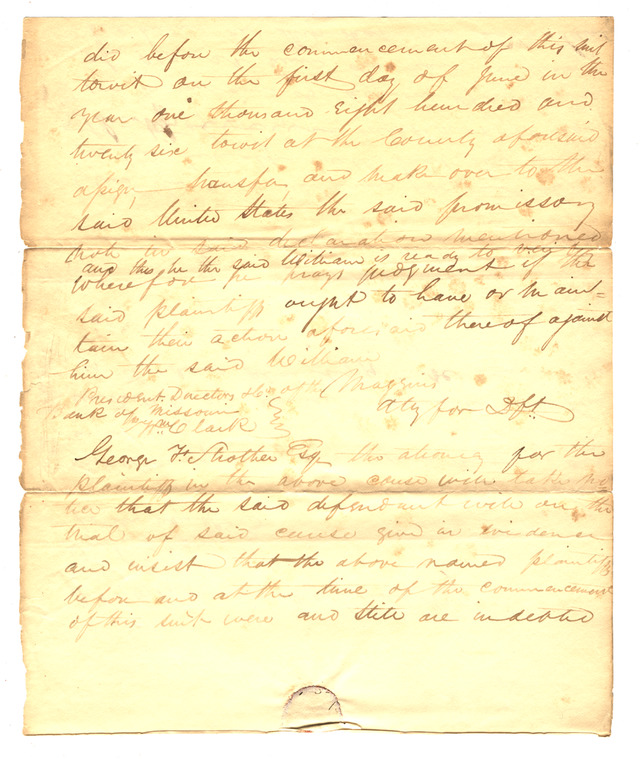 did before the commencement of this suit
towit on the first day of June in the
year one thousand Eight hundred and
twenty six towit at the County aforesaid
assign, transfer, and make over to the
said United States the said promissory
note in said declaration mentioned
and this he the said William is ready to verify
Wherefore he prays judgment if the
said plaintiffs ought to have or main-
tain their action aforesaid thereof against
him the said William
Magginis
Aty for Dft
President, Directors &Co of the
Bank of Missouri
vs Wm Clark
George F. Strother Esq the attorney for the
plaintiffs in the above cause will take no
tice that the said defendant will on the
trial of said cause give in evidence
and insist that the above named plaintiffs
before and at the time of the commencement
of this suit were and still are indebted